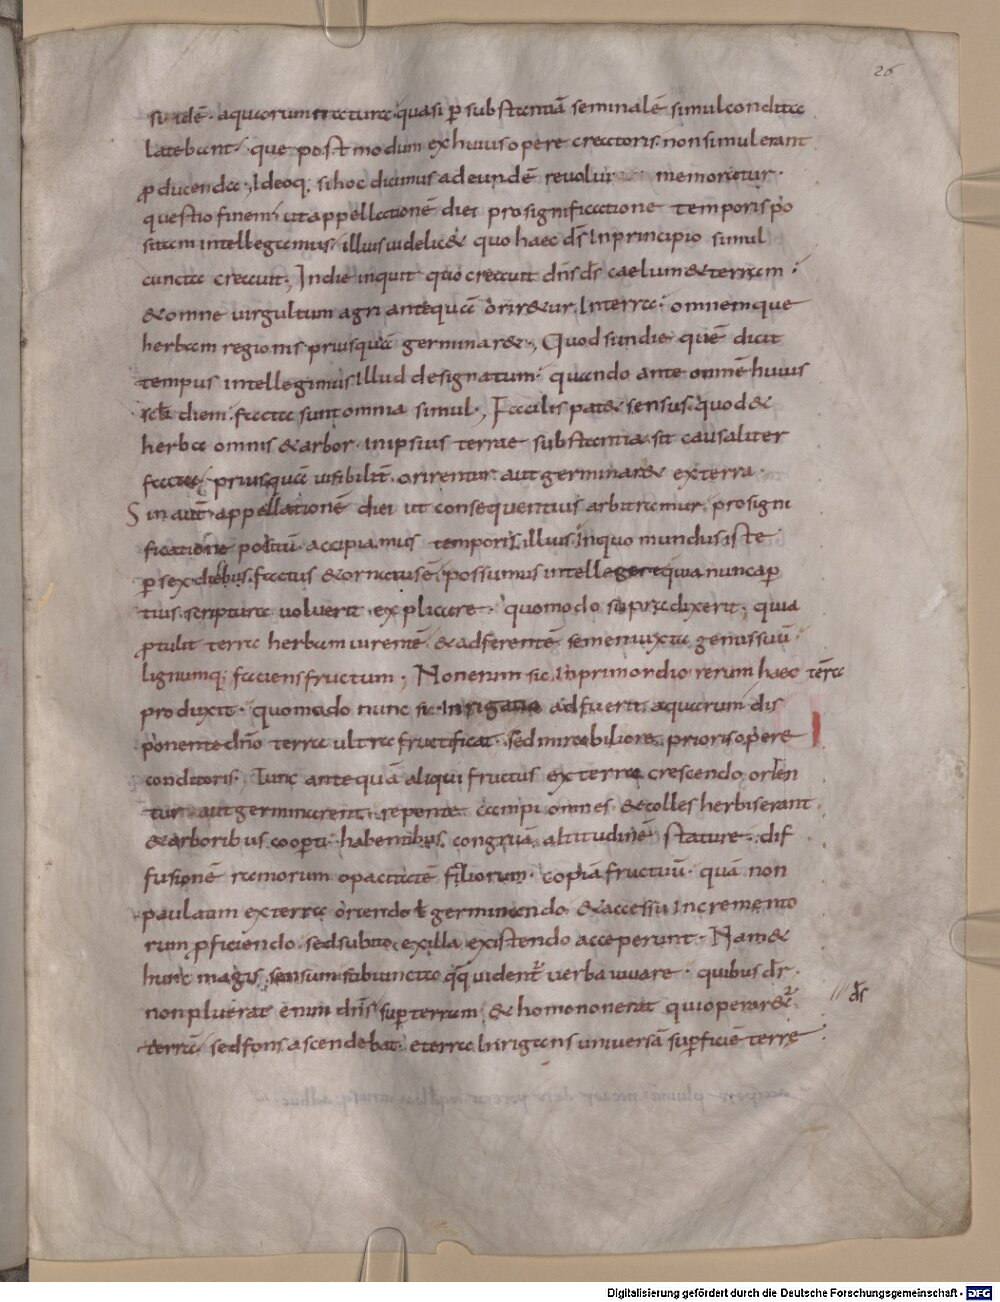 26
sīdē · aquarum creature quasi p̄ substantiā seminalē simul condite
latebant · que postmodum ex huius opere creatoris · non simul erant
producende ·, Ideoq; si hoc dicimus ad eundē revolui memoratur ·
questio finem · ut appellationē diei pro significatione temporis po
sitam intellegamus · illius videlic& quo haec ds̄ In principio simul
cuncta creavit ·, In die inquit quo creavit dn̄s ds̄ caelum & terram ·
& omne virgultum agri antequā orir&ur In terra · omnemque
herbam regionis priusquā germinar& ·, Quod si in die quē dicit
tempus intellegimus Illud designatum · quando ante omnē huius
sc̄li diem · facta sunt omnia simul ·, Facilis pat& sensus · quod &
herba omnis & arbor · in ipsius terrae substantia sit causaliter
facta · priusquā visibilit̄ orirentur aut germinar& ex terra ·
Sin aut̄ appellationē diei ut consequentius arbitramur · pro signi
ficatione positū accipiamus temporis illius In quo mundus iste
p̄ sex diebus · factus & ornatus ē · possumus intellegere quia nunc ap̄
tius scriptura voluerit explicare · quomodo supra dixerit · quia
protulit terra herbam virentē & adferentē semen iuxta genus suū ·
lignumq; faciens fructum ·, Non enim sic In primordio rerum haec terra
produxit · quomodo nunc sic Inrigatio adfuerit aquarum dis
ponente dn̄o terra ultra fructificat · sed mirabiliore prioris opere
conditoris · Tunc antequā aliqui fructus ex terra crescendo orīen
tur aut germinarent · repente campi omnes & colles herbis erant
& arboribus cooperti · habentibus congruā altitudinē stature · dif
fusionē ramorum opacitatē foliorum · copiā fructuū · quā non
paulatim ex terra oriendo ł germinando & accessu Incremento
rum proficiendo · sed subito ex illa existendo acceperunt · Nam &
hunc magis sensum subiuncta q̄q̄ vident̄ verba iuvare · quibus dr̄ ·
non pluerat enim dn̄s sup̄ terram · & homo non erat qui operar&ur
ds̄
terrā · sed fons ascendebat e terra Inrigans universā sup̄ficiē terre
Digitalisierung gefördert durch die Deutsche Forschungsgemeinschaft - DFG